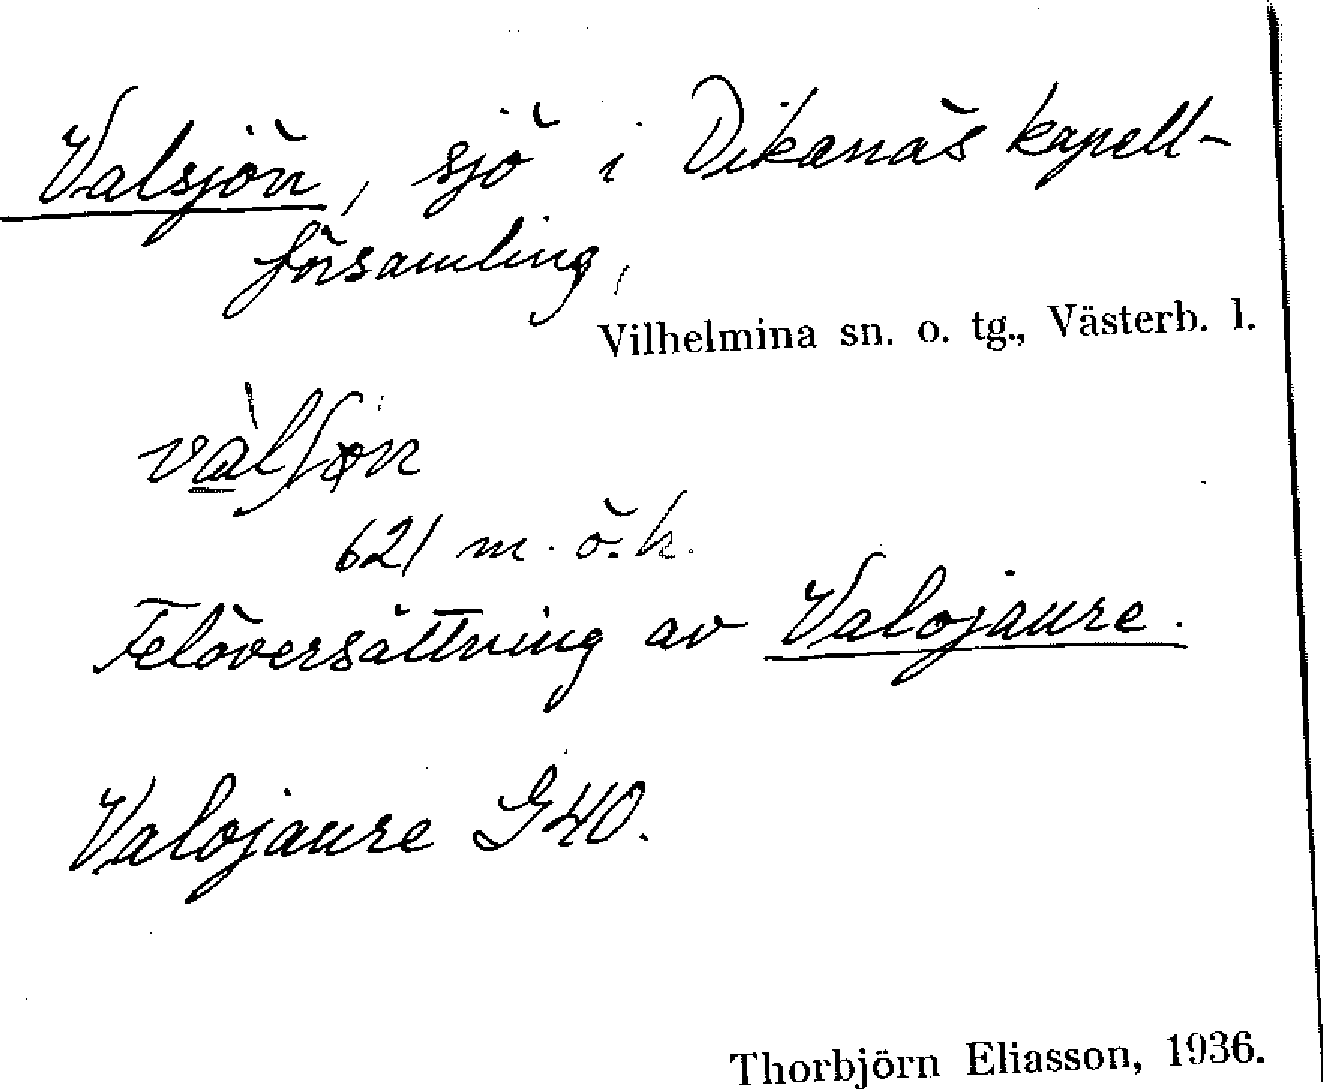 Valsjön, sjö i Dikanäs kapell-
församling,
Vilhelmina sn. o. tg., Västerb. l.
621 m. ö. h.
Felöversättning av Valojaure.
Valojaure G40.
Thorbjörn Eliasson, 1936.